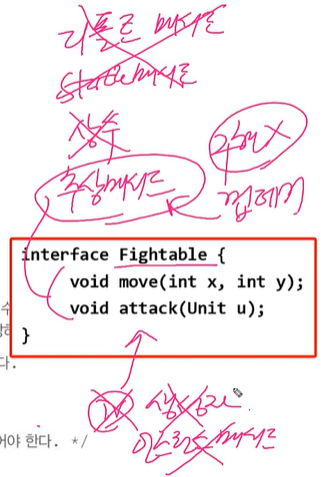 디폴트 메서드
static메서드
상수
구현X
추상메서드
껍데기
interface Fightable {
void move(int x, int y);
수
void attack(Unit u);
}
다.
iv 생성자.
인스턴스메서드
어야 한다. */